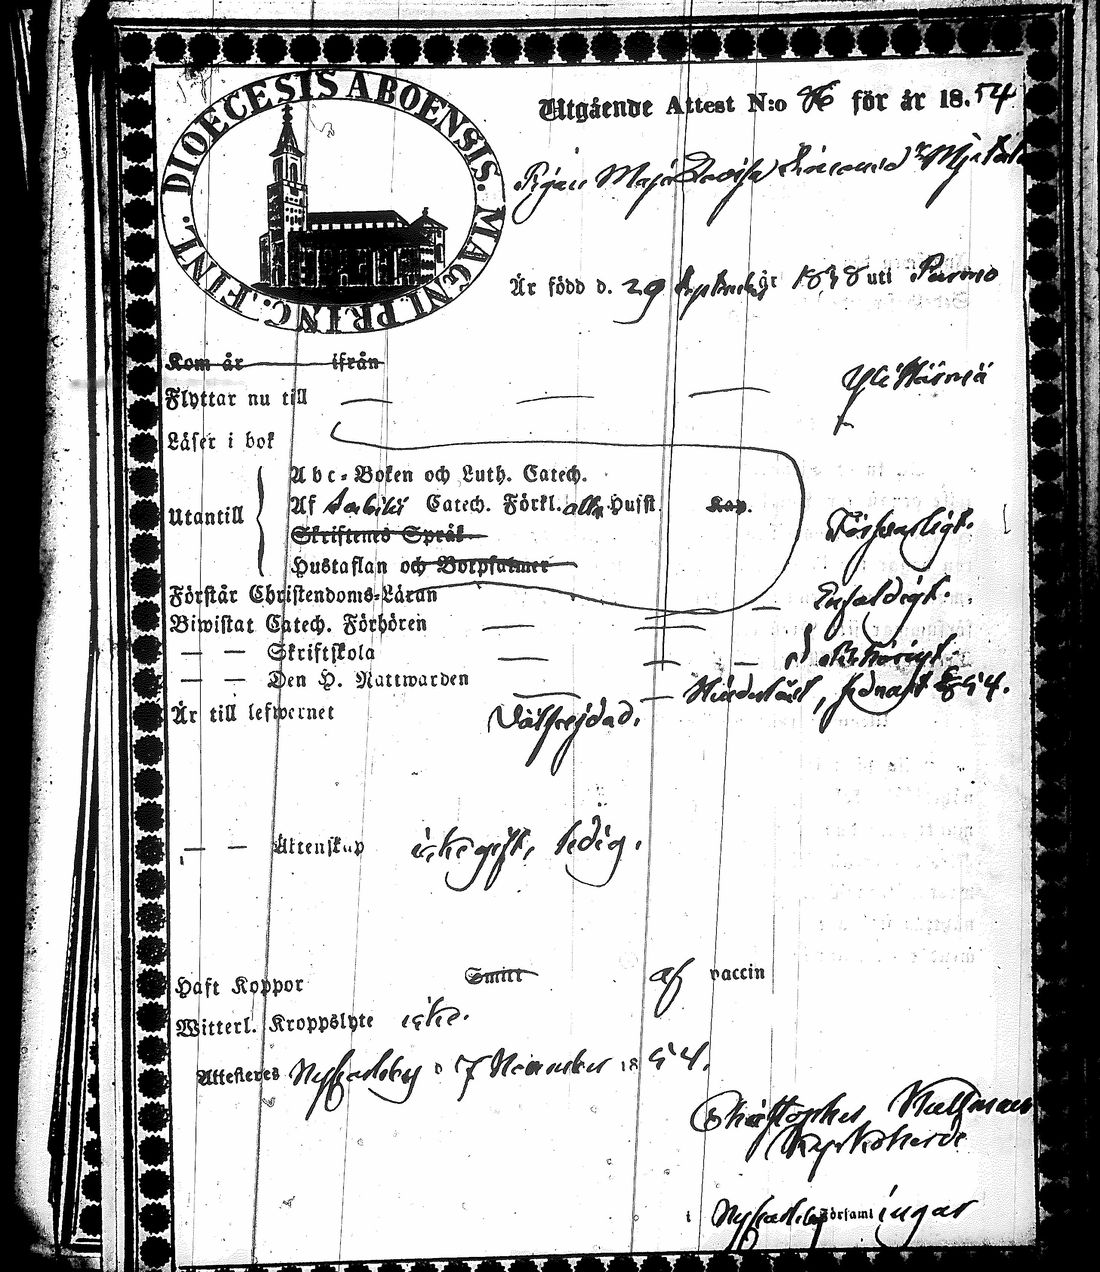 DIOECESIS ABOENSIS. MAGNI PRINC. FINL.
Utgående Attest N:o för år 1854
Pigan Maja Lovisa
Är född d. 29 September år 1838 uti Purmo
Kom år ifrån
Flyttar nu till Ylihärmä
Läser i bok
Abc-Boken och Luth. Catech.
Utantill Af Catech. Förkl. alla Husst. Kap. Försvarligt.
Skriftenes Språk
Hustaflan och Botpsalmer
Förstår Christendoms-Läran Enfaldigt.
Biwistat Catech. Förhören
— — Skriftskola
— — Den H. Nattwarden 1854.
Är till lefwernet Välfrejdad.
— — Äktenskap icke gift, ledig.
Haft Koppor Smitt af vaccin
Witterl. Kroppslyte icke.
Attesteres Nykarleby d 7 November 1854.
Christopher
Kyrkoherde
i Nykarleby Församlingar